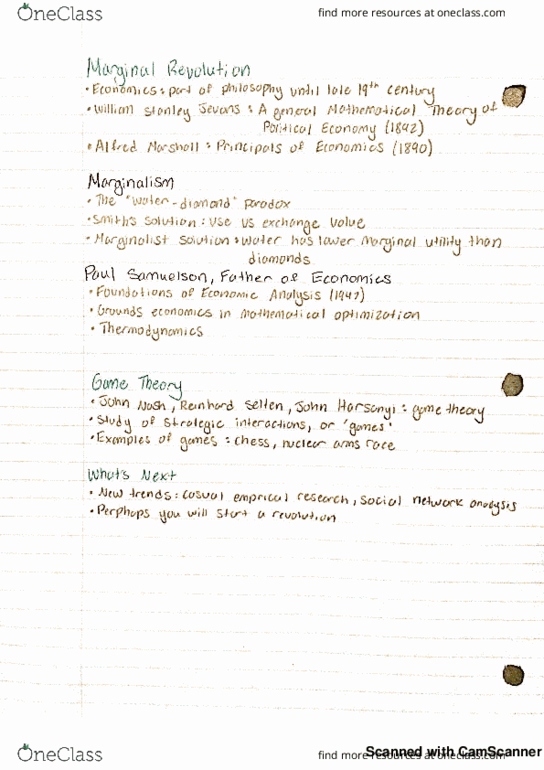 OneClass
find more resources at oneclass.com
Marginal Revolution
• Economics: part of philosophy until late 19th century
• William Stanley Jevons: A general Mathematical Theory of
Political Economy (1892)
• Alfred Marshall: Principals of Economics (1890)
Marginalism
• The "water-diamond" paradox
• Smith's solution: use vs exchange value
• Marginalist solution: water has lower marginal utility than
diamonds
Paul Samuelson, Father of Economics
• Foundations of Economic Analysis (1947)
• Grounds economics in mathematical optimization
• Thermodynamics
Game Theory
• John Nash, Reinhard Selten, John Harsanyi: game theory
• Study of strategic interactions, or 'games'
• Examples of games: chess, nuclear arms race
What's Next
• New trends: casual emprical research, social network analysis
• Perphaps you will start a revolution
OneClass
find more resources at oneclass.com
Scanned with CamScanner